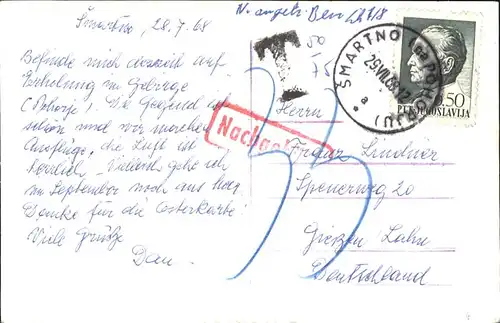 Šmartno, 28.7.68
Befinde mich derzeit auf
Erholung im Gebirge
(Pohorje). Die Gegend ist
schön und wir machen
Ausflüge, die Luft ist
herrlich. Vielleicht gehe ich
im September noch ans Meer.
Danke für die Osterkarte.
Viele Grüße
Dan
T
50
75
Nachgebühr
33
ŠMARTNO
29.VII.68-12
a
50
JUGOSLAVIJA
Herrn
Franz Lindner
Spenerweg 20
Gießen Lahn
Deutschland